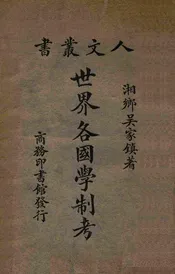 書叢文人
湘鄉吳家鎮著
世界各國學制考
商務印書館發行